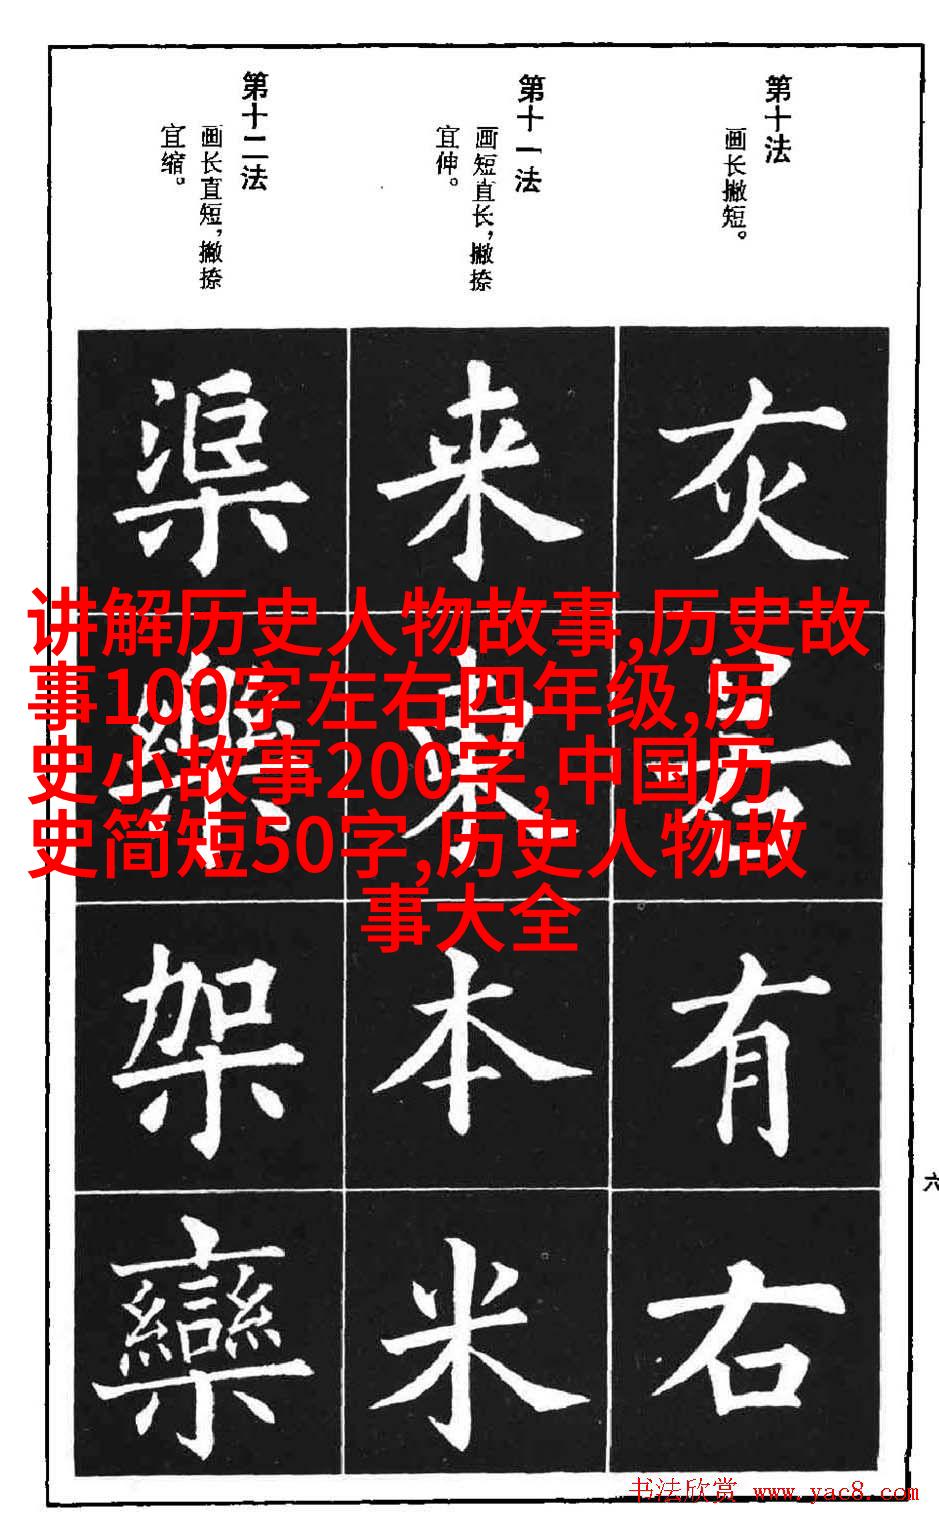 第十法
画长撇短。
第十一法
画短直长，撇捺
宜伸。
第十二法
画长直短，撇捺
宜缩。
灰
有
右
来
東
本
米
渠
樂
架
欒
讲解历史人物故事,历史故
事100字左右四年级,历
史小故事200字,中国历
史简短50字,历史人物故
事大全
六
书法欣赏 www.yac8.com